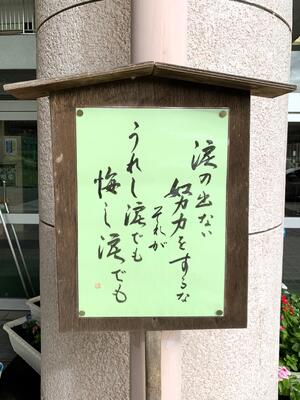 涙の出ない
努力をするな
それが
うれし涙でも
悔し涙でも